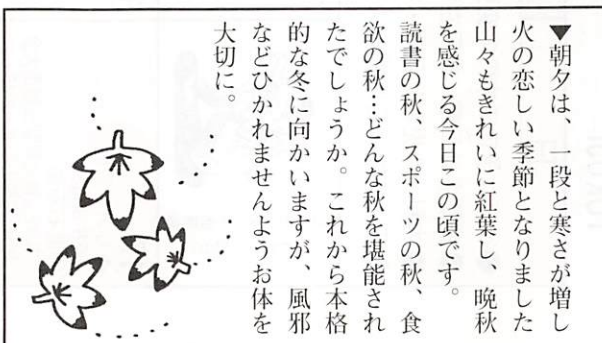 ▼朝夕は、一段と寒さが増し
火の恋しい季節となりました
山々もきれいに紅葉し、晩秋
を感じる今日この頃です。
読書の秋、スポーツの秋、食
欲の秋…どんな秋を堪能され
たでしょうか。これから本格
的な冬に向かいますが、風邪
などひかれませんようお体を
大切に。